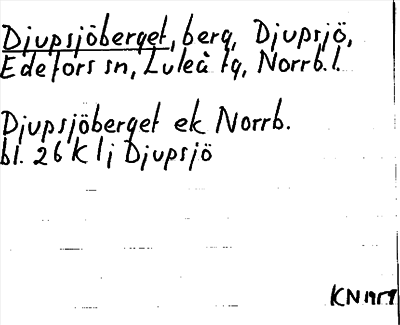 Djupsjöberget, berg, Djupsjö,
Edefors sn, Luleå tg, Norrb. l.
Djupsjöberget ek Norrb.
bl. 26 K l j Djupsjö
KN